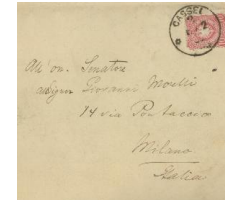 CASSEL
All' on. Senatore
Signor Giovanni Morelli
14 via Pontaccio
Milano
Italia